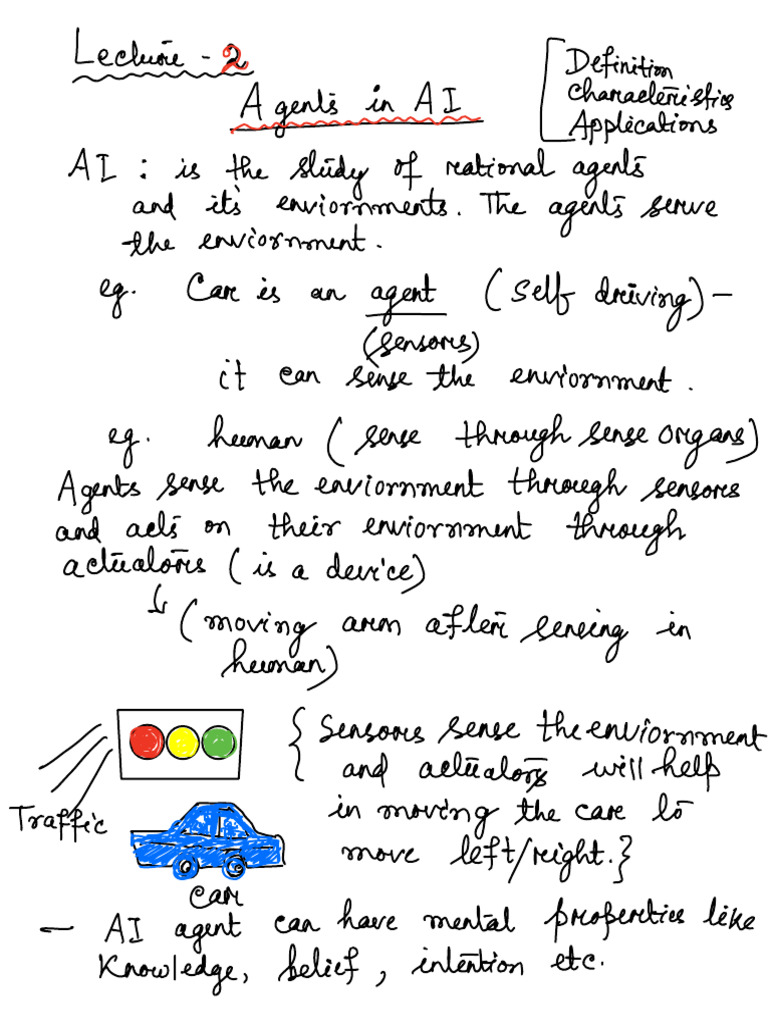 Lecture - 2
Agents in AI
Definition
Characteristics
Applications
AI : is the study of rational agents
and its enviornments. The agents serve
the enviornment.
eg. Car is an agent (self driving) -
(sensors)
it can sense the enviornment.
eg. human ( sense through sense organs)
Agents sense the enviornment through sensors
and acts on their enviornment through
actuators ( is a device)
(moving arm after sensing in
human)
{ Sensors sense the enviornment
and actuators will help
in moving the car to
move left/right. }
Traffic
car
- AI agent can have mental properties like
Knowledge, belief, intention etc.